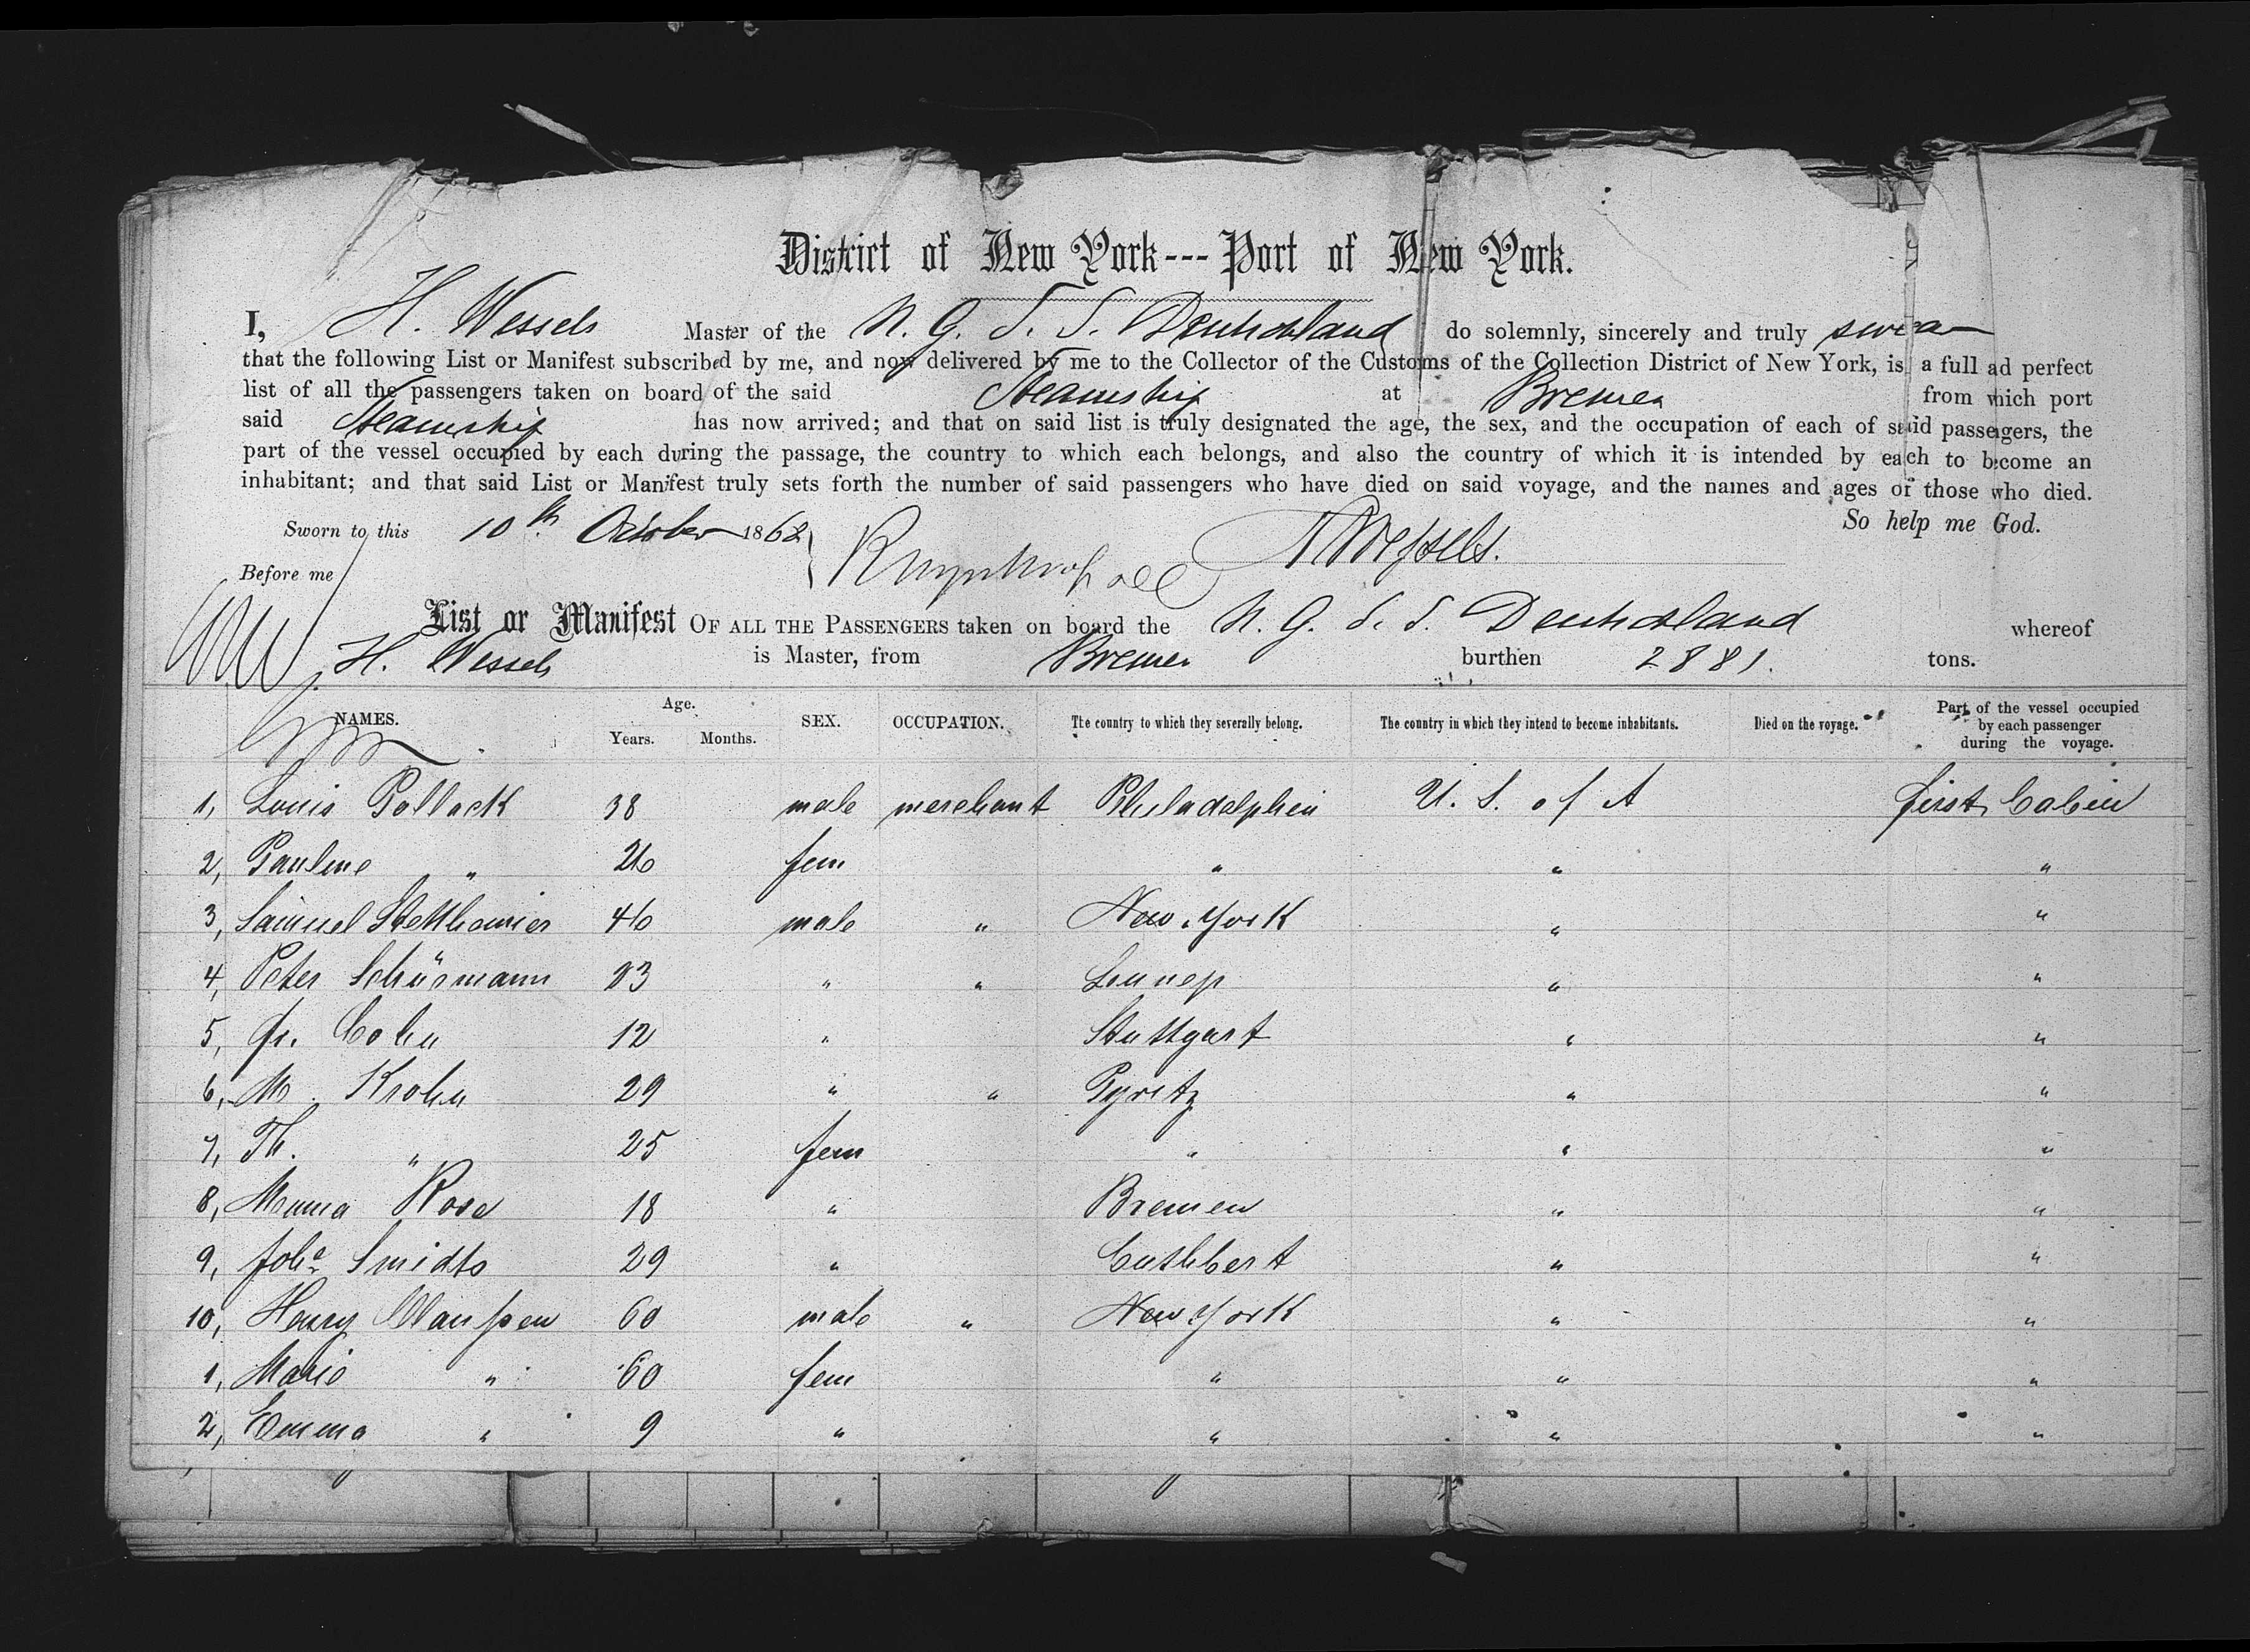 District of New York--- Port of New York.
I, H. Wessels Master of the N. G. S. S. Deutschland do solemnly, sincerely and truly swear
that the following List or Manifest subscribed by me, and now delivered by me to the Collector of the Customs of the Collection District of New York, is a full ad perfect
list of all the passengers taken on board of the said Steamship at Bremen from which port
said Steamship has now arrived; and that on said list is truly designated the age, the sex, and the occupation of each of said passengers, the
part of the vessel occupied by each during the passage, the country to which each belongs, and also the country of which it is intended by each to become an
inhabitant; and that said List or Manifest truly sets forth the number of said passengers who have died on said voyage, and the names and ages of those who died.
Sworn to this 10th October 1868 H Wessels. So help me God.
Before me
List or Manifest OF ALL THE PASSENGERS taken on board the N. G. S. S. Deutschland whereof
H. Wessels is Master, from Bremen burthen 2881. tons.
NAMES. Age. Years. Months. SEX. OCCUPATION. The country to which they severally belong. The country in which they intend to become inhabitants. Died on the voyage. Part of the vessel occupied by each passenger during the voyage.
1, Louis Pollack 38 male merchant Philadelphia U. S. of A first Cabin
2, Pauline " 26 fem " " "
3, Samuel 46 male " New York " "
4, Peter Schürmann 23 " " Lennep " "
5, fr. Cohn 12 " Stuttgart " "
6, M. Krohn 29 " " Pyritz " "
7, Th. " 25 fem " " "
8, Rose 18 " Bremen " "
9, Joha Smidts 29 " Cuthbert " "
10, Henry Claussen 60 male " New York " "
1, Marie " 60 fem " " "
2, Emma " 9 " " " "